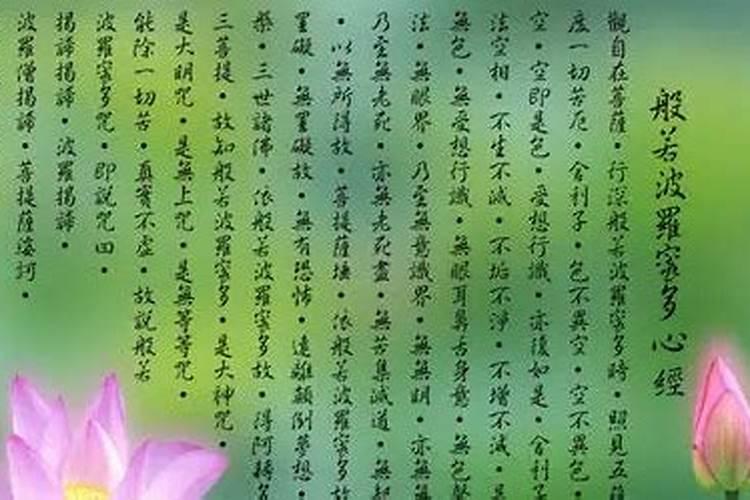 般若波羅蜜多心經
觀自在菩薩・行深般若波羅蜜多時・照見五蘊
度一切苦厄・舍利子・色不異空・空不異色・
空・空即是色・受想行識・亦復如是・舍利子
法空相・不生不滅・不垢不淨・不增不減・是
無色・無受想行識・無眼耳鼻舌身意・無色聲
法・無眼界・乃至無意識界・無無明・亦無
乃至無老死・亦無老死盡・無苦集滅道・無智
・以無所得故・菩提薩埵・依般若波羅蜜多故
罣礙・無罣礙故・無有恐怖・遠離顛倒夢想・
槃・三世諸佛・依般若波羅蜜多故・得阿耨多
三菩提・故知般若波羅蜜多・是大神咒・
是大明咒・是無上咒・是無等等咒・
能除一切苦・真實不虛・故説般若
波羅蜜多咒・即説咒曰・
揭諦揭諦・波羅揭諦・
波羅僧揭諦・菩提薩婆訶・